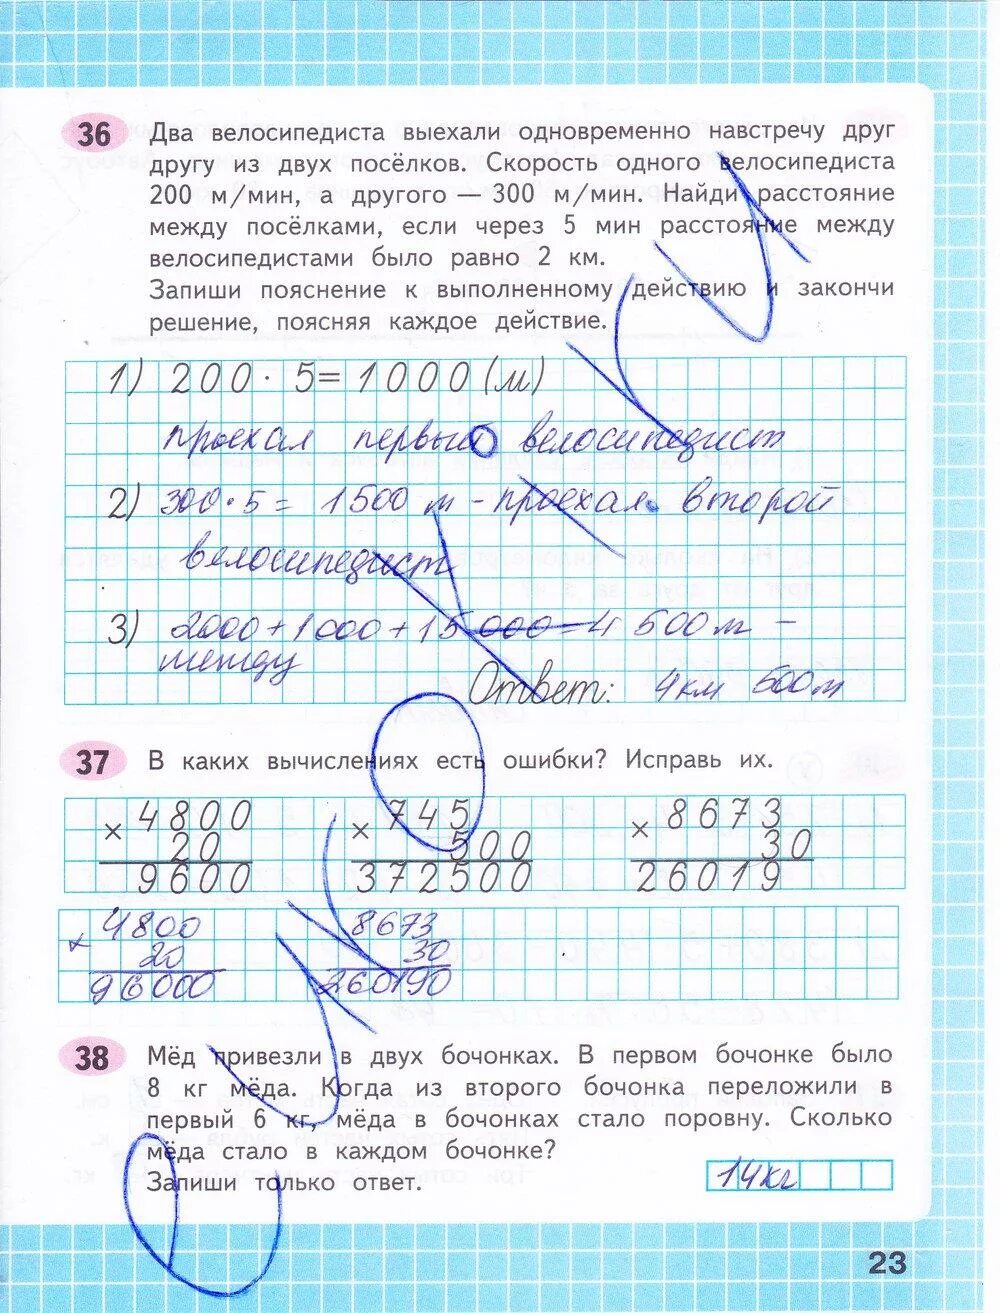 36 Два велосипедиста выехали одновременно навстречу друг
другу из двух посёлков. Скорость одного велосипедиста
200 м/мин, а другого — 300 м/мин. Найди расстояние
между посёлками, если через 5 мин расстояние между
велосипедистами было равно 2 км.
Запиши пояснение к выполненному действию и закончи
решение, поясняя каждое действие.
1) 200 · 5 = 1000 (м)
проехал первый велосипедист
2) 300 · 5 = 1500 м - проехал второй
велосипедист
3) 2000 + 1000 + 15000 = 4 500 м -
между
Ответ: 4 км 500 м
37 В каких вычислениях есть ошибки? Исправь их.
× 4800 × 745 × 8673
20 500 30
9600 372500 26019
× 4800 8673
20 30
96000 260190
38 Мёд привезли в двух бочонках. В первом бочонке было
8 кг мёда. Когда из второго бочонка переложили в
первый 6 кг, мёда в бочонках стало поровну. Сколько
мёда стало в каждом бочонке?
Запиши только ответ. 14 кг
23